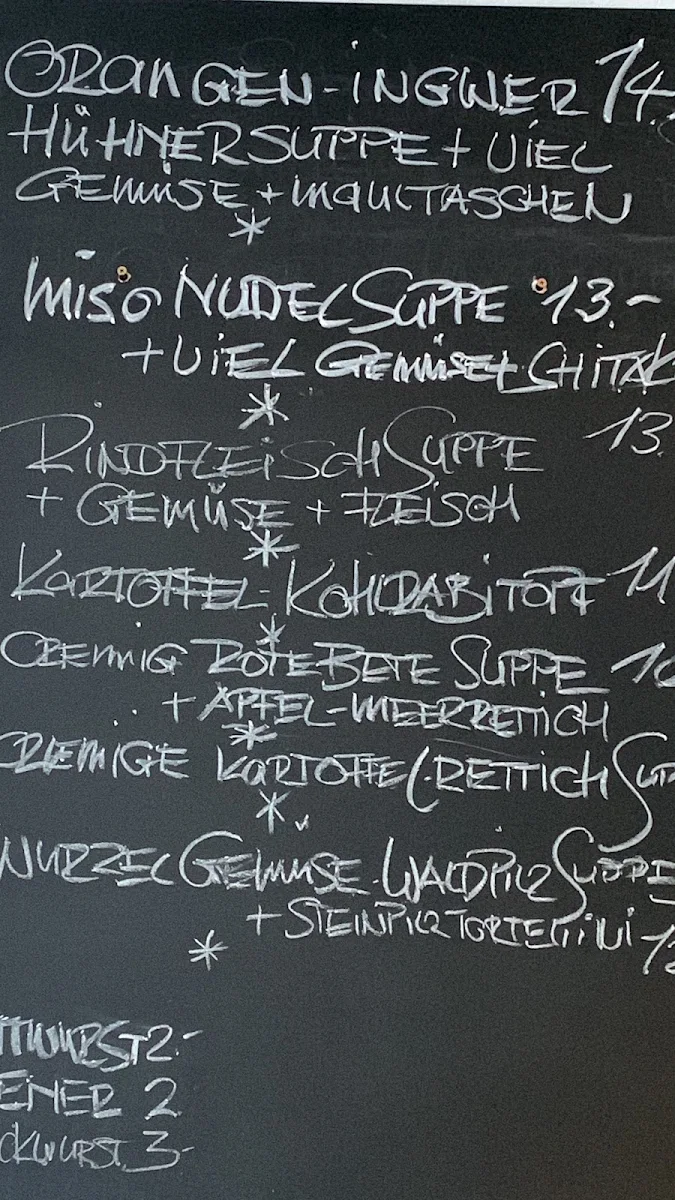 ORANGEN-INGWER 14.
HÜHNERSUPPE + VIEL
GEMÜSE + MAULTASCHEN
*
MISO NUDELSUPPE 13.-
+ VIEL GEMÜSE + SHITAK
*
RINDFLEISCHSUPPE 13.
+ GEMÜSE + FLEISCH
*
KARTOFFEL-KOHLRABITOPF 11
*
CREMIG ROTE BETE SUPPE 10
+ APFEL-MEERRETTICH
*
CREMIGE KARTOFFEL-RETTICHSUP
*
WURZELGEMÜSE-WALDPILZSUPPE
+ STEINPILZTORTELLINI 1
*
TTWURST 2.-
ENER 2
CKWURST 3-